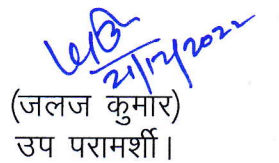 21/12/2022
(जलज कुमार)
उप परामर्शी।